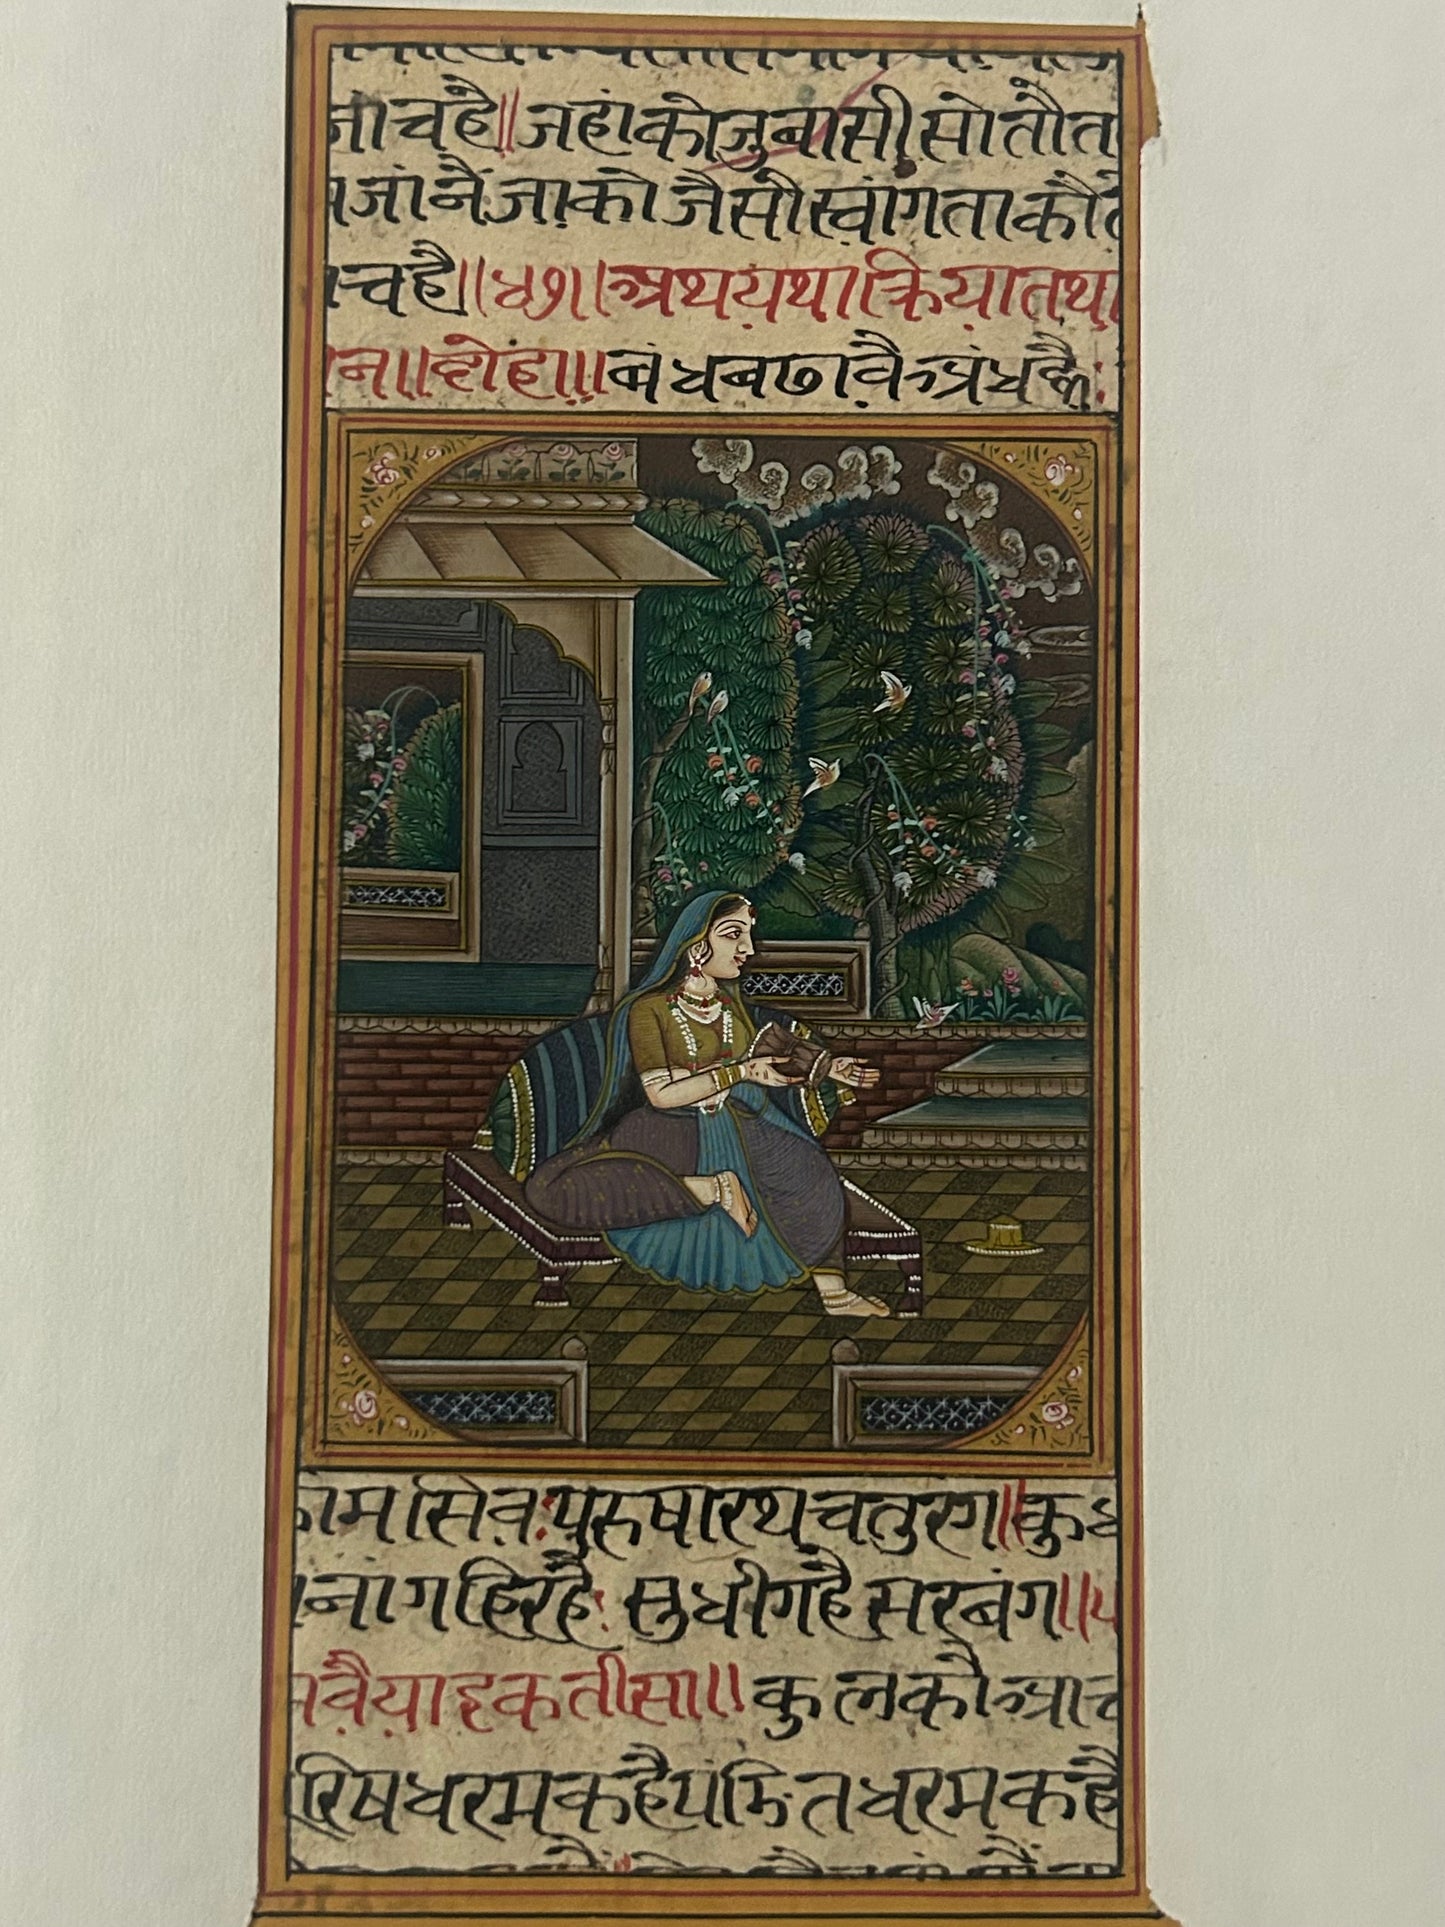 जांचहै॥जहांकोजुबासीसोतौत
जांनैजाकोजैसौस्वांगताकौ
चहै॥५७॥अथयथाक्रियातथा
न॥दोहा॥॥बंधबढावैअंधह्वै:
मसिव:पुरुषारथचतुरग॥कुध
नांगहिरहै:सुधीगहैसरबंग॥
वैयाइकतीसा॥कुलकौआच
रिषधरमकहैपंडितधरमकहै